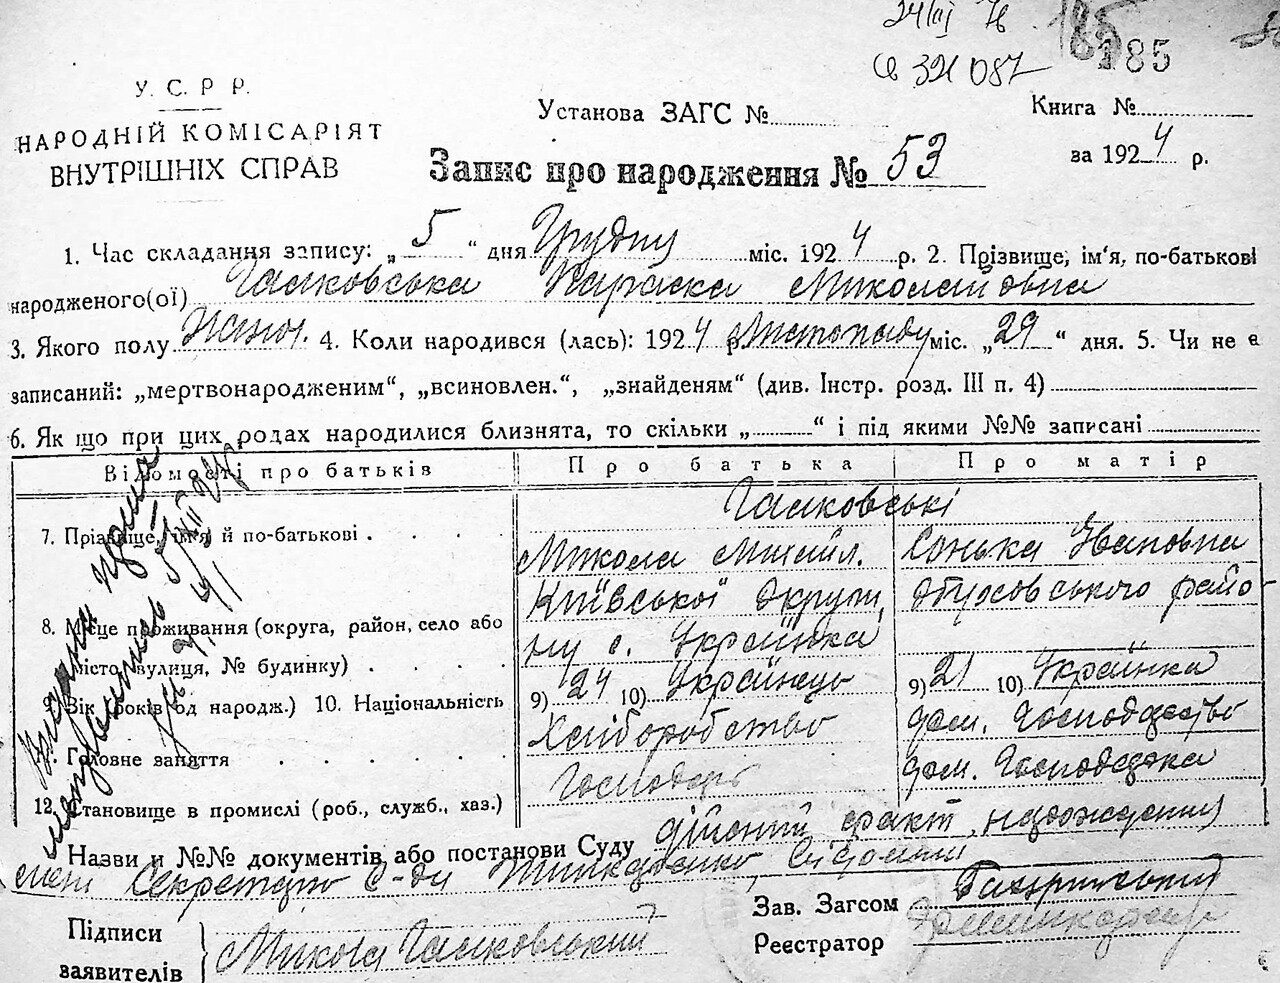 24/III 76
185
185
У. С. Р. Р.
НАРОДНІЙ КОМІСАРІЯТ
ВНУТРІШНІХ СПРАВ
Установа ЗАГС №
Книга №
Запис про народження № 53
за 1924 р.
1. Час складання запису: „ 5 “ дня Грудну міс. 1924 р. 2. Прізвище, ім'я, по-батькові
народженого(ої) Гаїковська Параска Миколаївна
3. Якого полу 4. Коли народився (лась): 1924 р. Листопаду міс. „29“ дня. 5. Чи не є
записаний: „мертвонародженим“, „всиновлен.“, „знайденям“ (див. Інстр. розд. III п. 4)
6. Як що при цих родах народилися близнята, то скільки „ “ і під якими №№ записані
Відомості про батьків Про батька Про матір
7. Прізвище, ім'я й по-батькові
Микола Михайл. Сонька Івановна
Київської Округи, Обуховського райо-
8. Місце проживання (округа, район, село або
ну с. Українка
місто, вулиця, № будинку)
9) 24 10) Українець 9) 21 10) Українка
9. Вік (років од народж.) 10. Національність
Хліборобство дом. Господарство
Головне заняття
Господарь дом. Господарка
12. Становище в промислі (роб., служб., хаз.)
Назви й №№ документів або постанови Суду дійсний факт народження
Секретарь С-ди
Зав. Загсом
Реєстратор
Підписи
заявителів
Микола